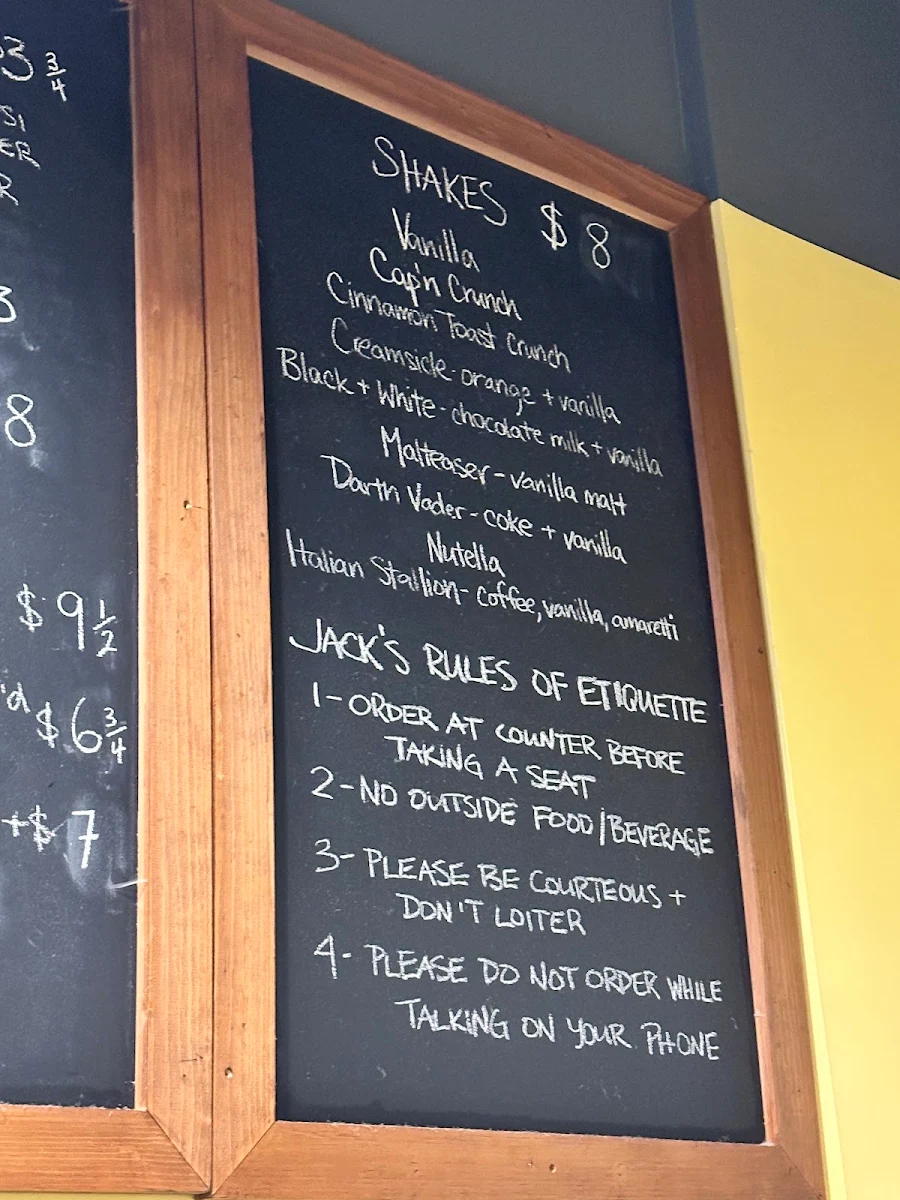 3 3/4
SI
ER
R
3
8
$ 9 1/2
'd $ 6 3/4
+$ 7
SHAKES $ 8
Vanilla
Cap'n Crunch
Cinnamon Toast Crunch
Creamsicle - orange + vanilla
Black + White - chocolate milk + vanilla
Malteaser - vanilla malt
Darth Vader - coke + vanilla
Nutella
Italian Stallion - coffee, vanilla, amaretti
JACK'S RULES OF ETIQUETTE
1 - ORDER AT COUNTER BEFORE
TAKING A SEAT
2 - NO OUTSIDE FOOD/BEVERAGE
3 - PLEASE BE COURTEOUS +
DON'T LOITER
4 - PLEASE DO NOT ORDER WHILE
TALKING ON YOUR PHONE